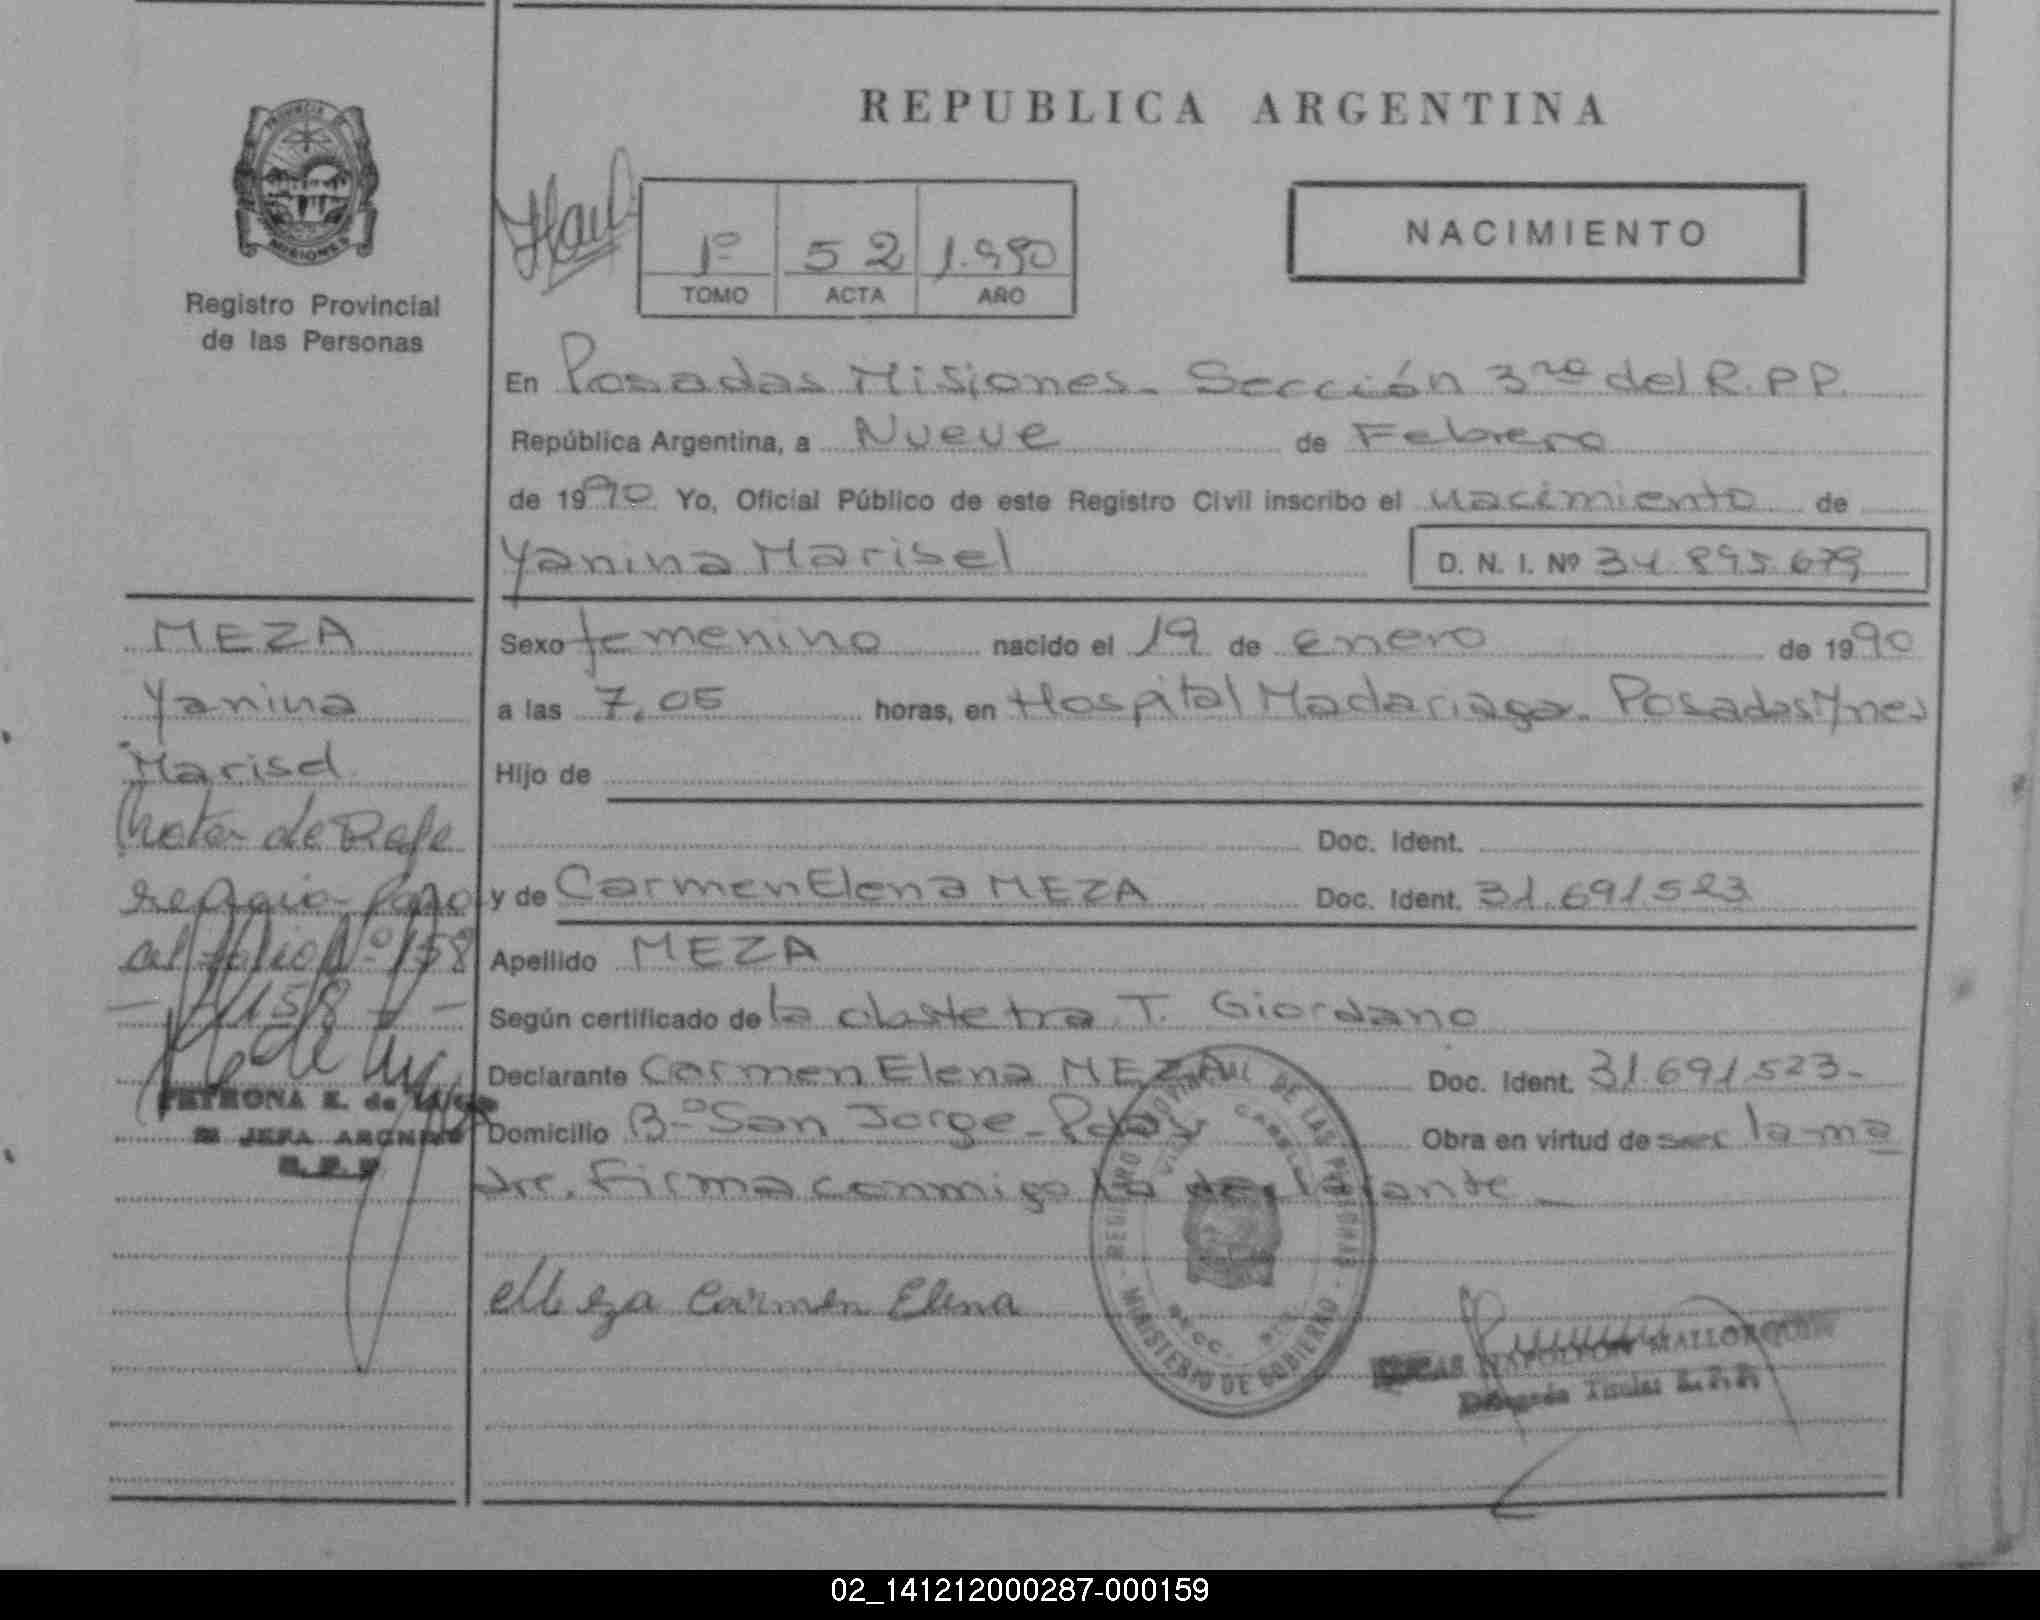 REPUBLICA ARGENTINA
NACIMIENTO
1º 52 1.990
TOMO ACTA AÑO
Registro Provincial
de las Personas
En Posadas Misiones - Sección 3ra del R.P.P.
República Argentina, a Nueve de Febrero
de 1990 Yo, Oficial Público de este Registro Civil inscribo el nacimiento de
Yanina Marisel D. N. I. Nº 34.895.679
MEZA
Yanina
Marisel
Nota de Refe
al folio Nº 158
- 158 -
PETRONA E. de
JEFA
R. P. P.
Sexo femenino nacido el 19 de enero de 1990
a las 7,05 horas, en Hospital Madariaga. Posadas Mnes
Hijo de
Doc. Ident.
y de Carmen Elena MEZA Doc. Ident. 31.691.523
Apellido MEZA
Según certificado de la obstetra T. Giordano
Declarante Carmen Elena MEZA Doc. Ident. 31.691.523-
Domicilio Bº San Jorge - Pdas Obra en virtud de ser la ma
dre. Firma conmigo la declarante
Meza Carmen Elena
REGISTRO PROVINCIAL DE LAS PERSONAS
MINISTERIO DE GOBIERNO
NAPOLEON MALLORQUIN
Titular R.P.P.
02_141212000287-000159